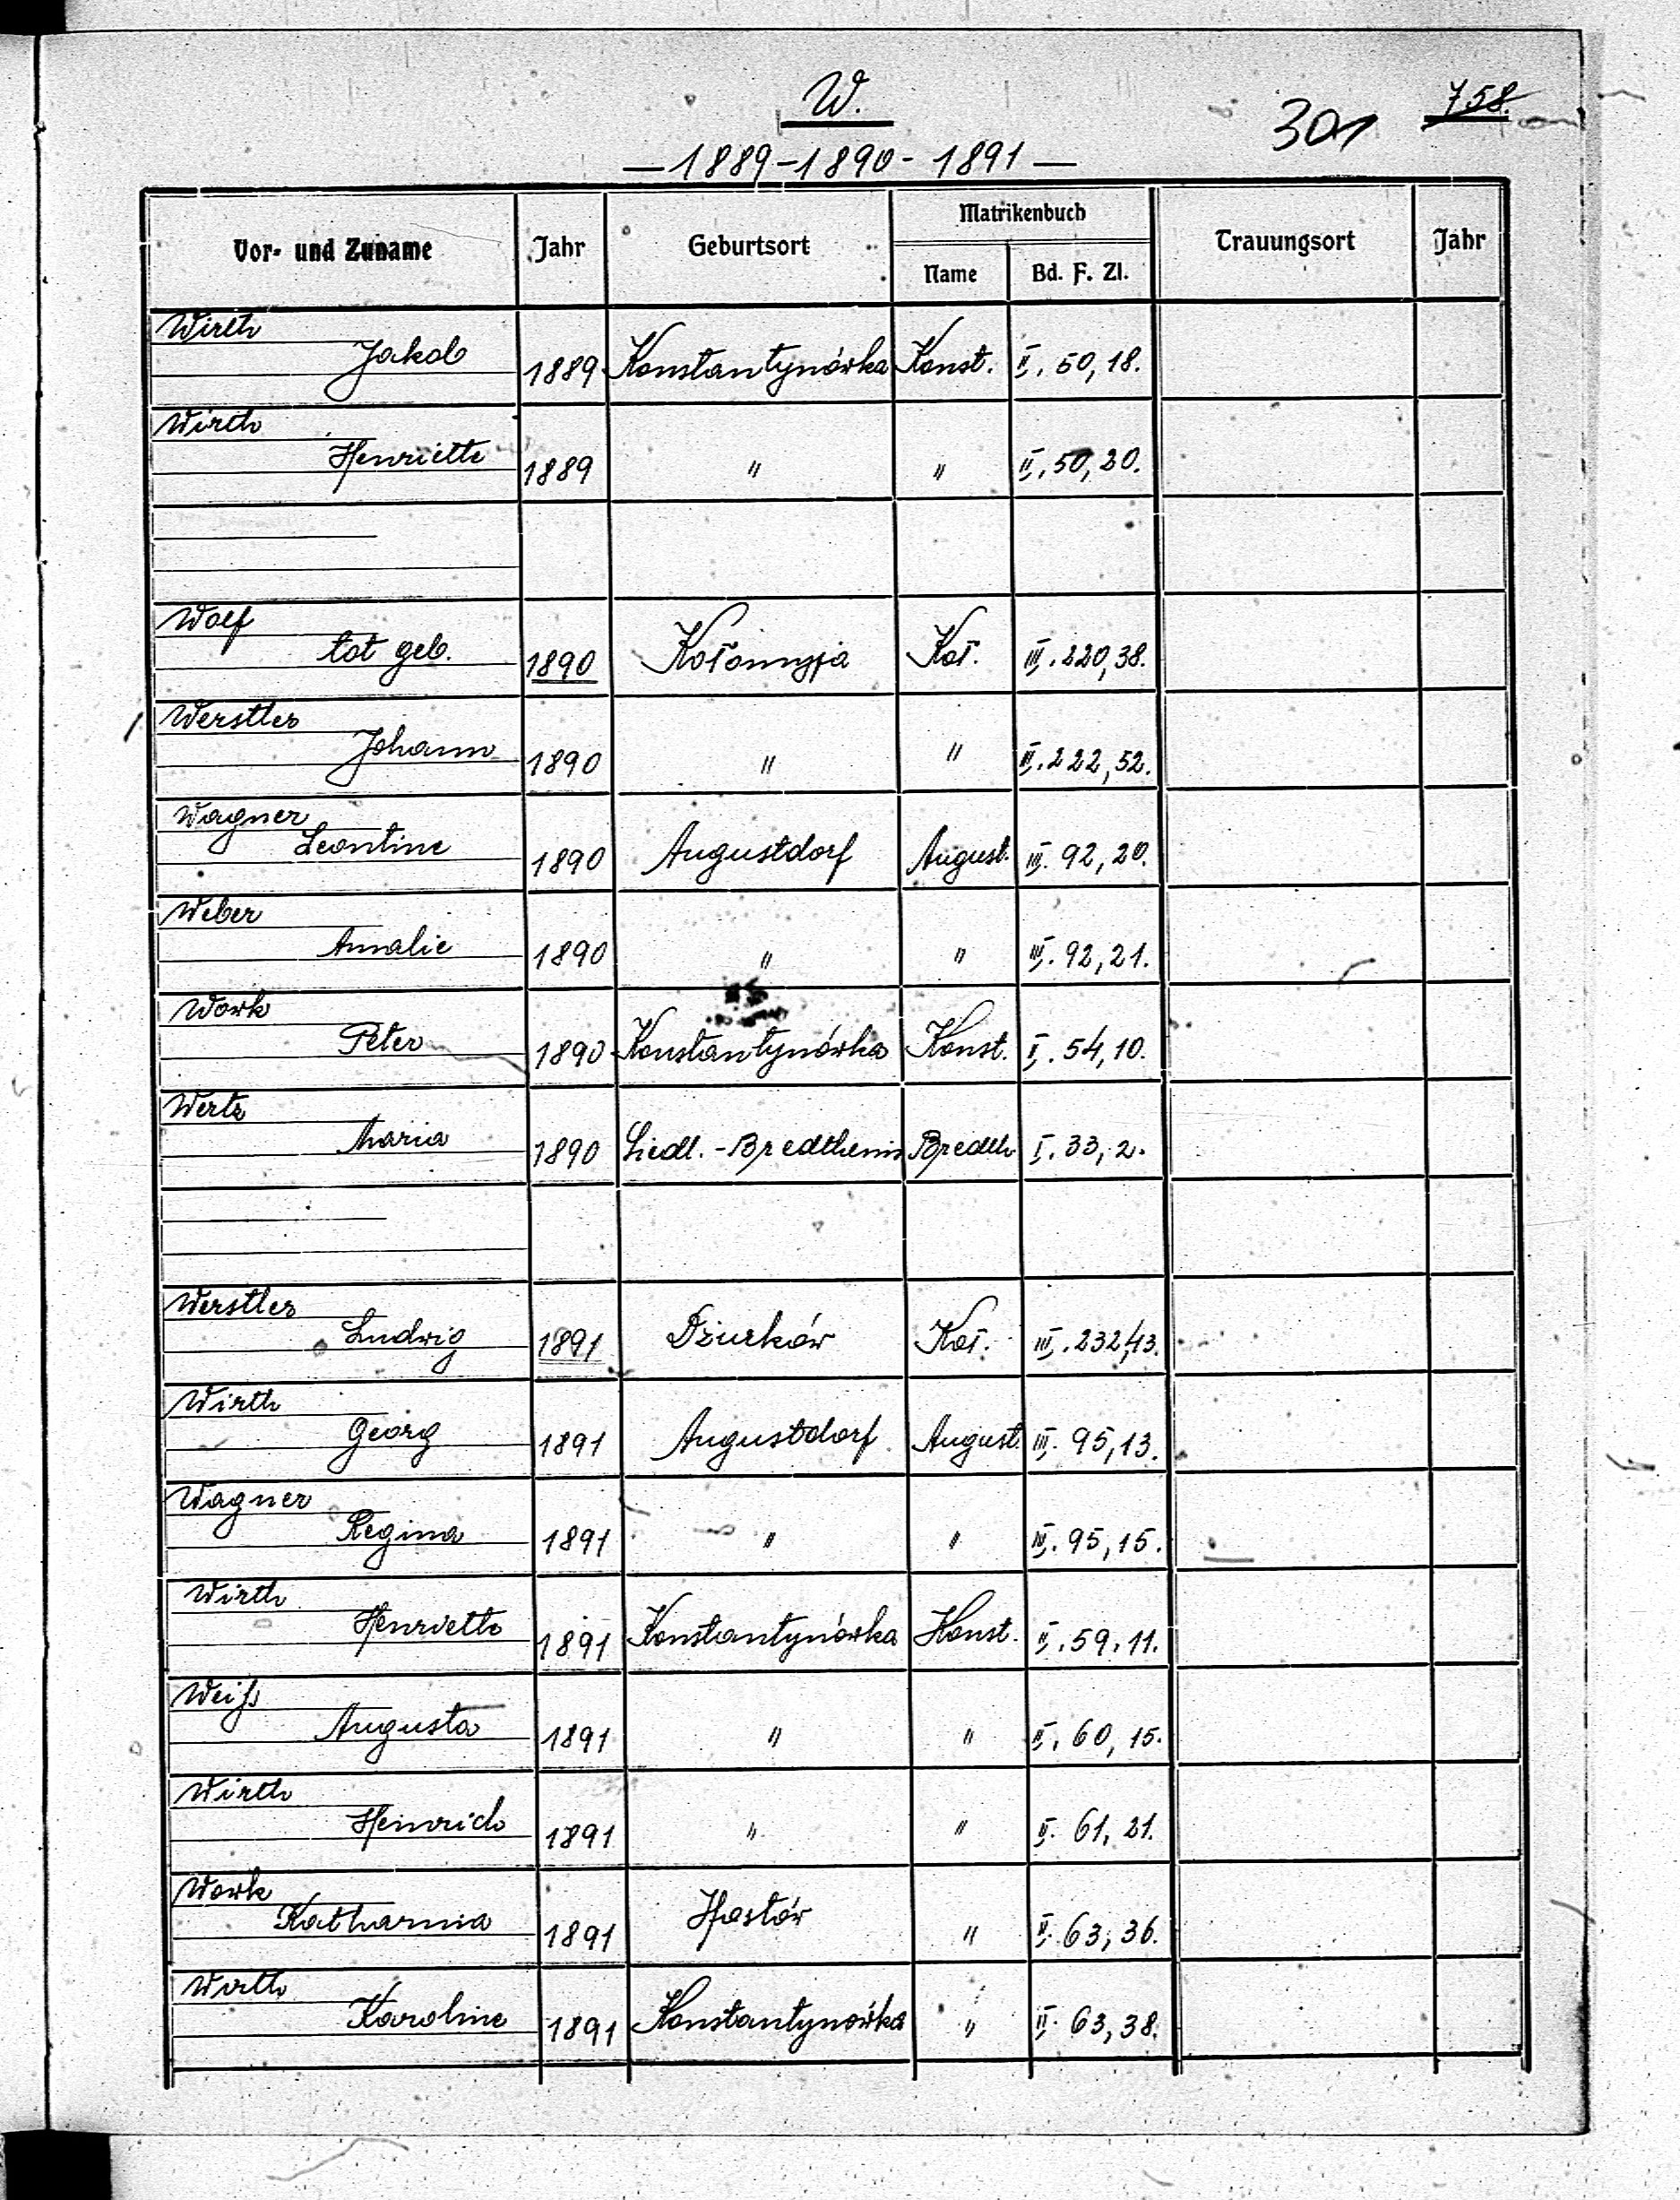 W.
301 758.
— 1889 - 1890 - 1891 —
Vor- und Zuname Jahr Geburtsort Matrikenbuch Trauungsort Jahr
Name Bd. F. Zl.
Wirth
Jakob 1889 Konstantynówka Konst. II. 50, 18.
Wirth
Henriette 1889 " " II. 50, 20.
Wolf
tot geb. 1890 Kołomyja Koł. III. 220, 38.
Werstler
Johann 1890 " " III. 222, 52.
Wagner
Leontine 1890 Augustdorf August. III. 92, 20.
Weber
Amalie 1890 " " III. 92, 21.
Work
Peter 1890 Konstantynówka Konst. I. 54, 10.
Wertz
Maria 1890 Siedl.-Bredtheim Bredth I. 33, 2.
Werstler
Ludwig 1891 Dżurków Koł. III. 232, 13.
Wirth
Georg 1891 Augustdorf August. III. 95, 13.
Wagner
Regina 1891 " " III. 95, 15.
Wirth
Henriette 1891 Konstantynówka Konst. II. 59, 11.
Weiß
Augusta 1891 " " II. 60, 15.
Wirth
Heinrich 1891 " " II. 61, 21.
Work
Katharina 1891 " II. 63, 36.
Wirth
Karoline 1891 Konstantynówka " II. 63, 38.